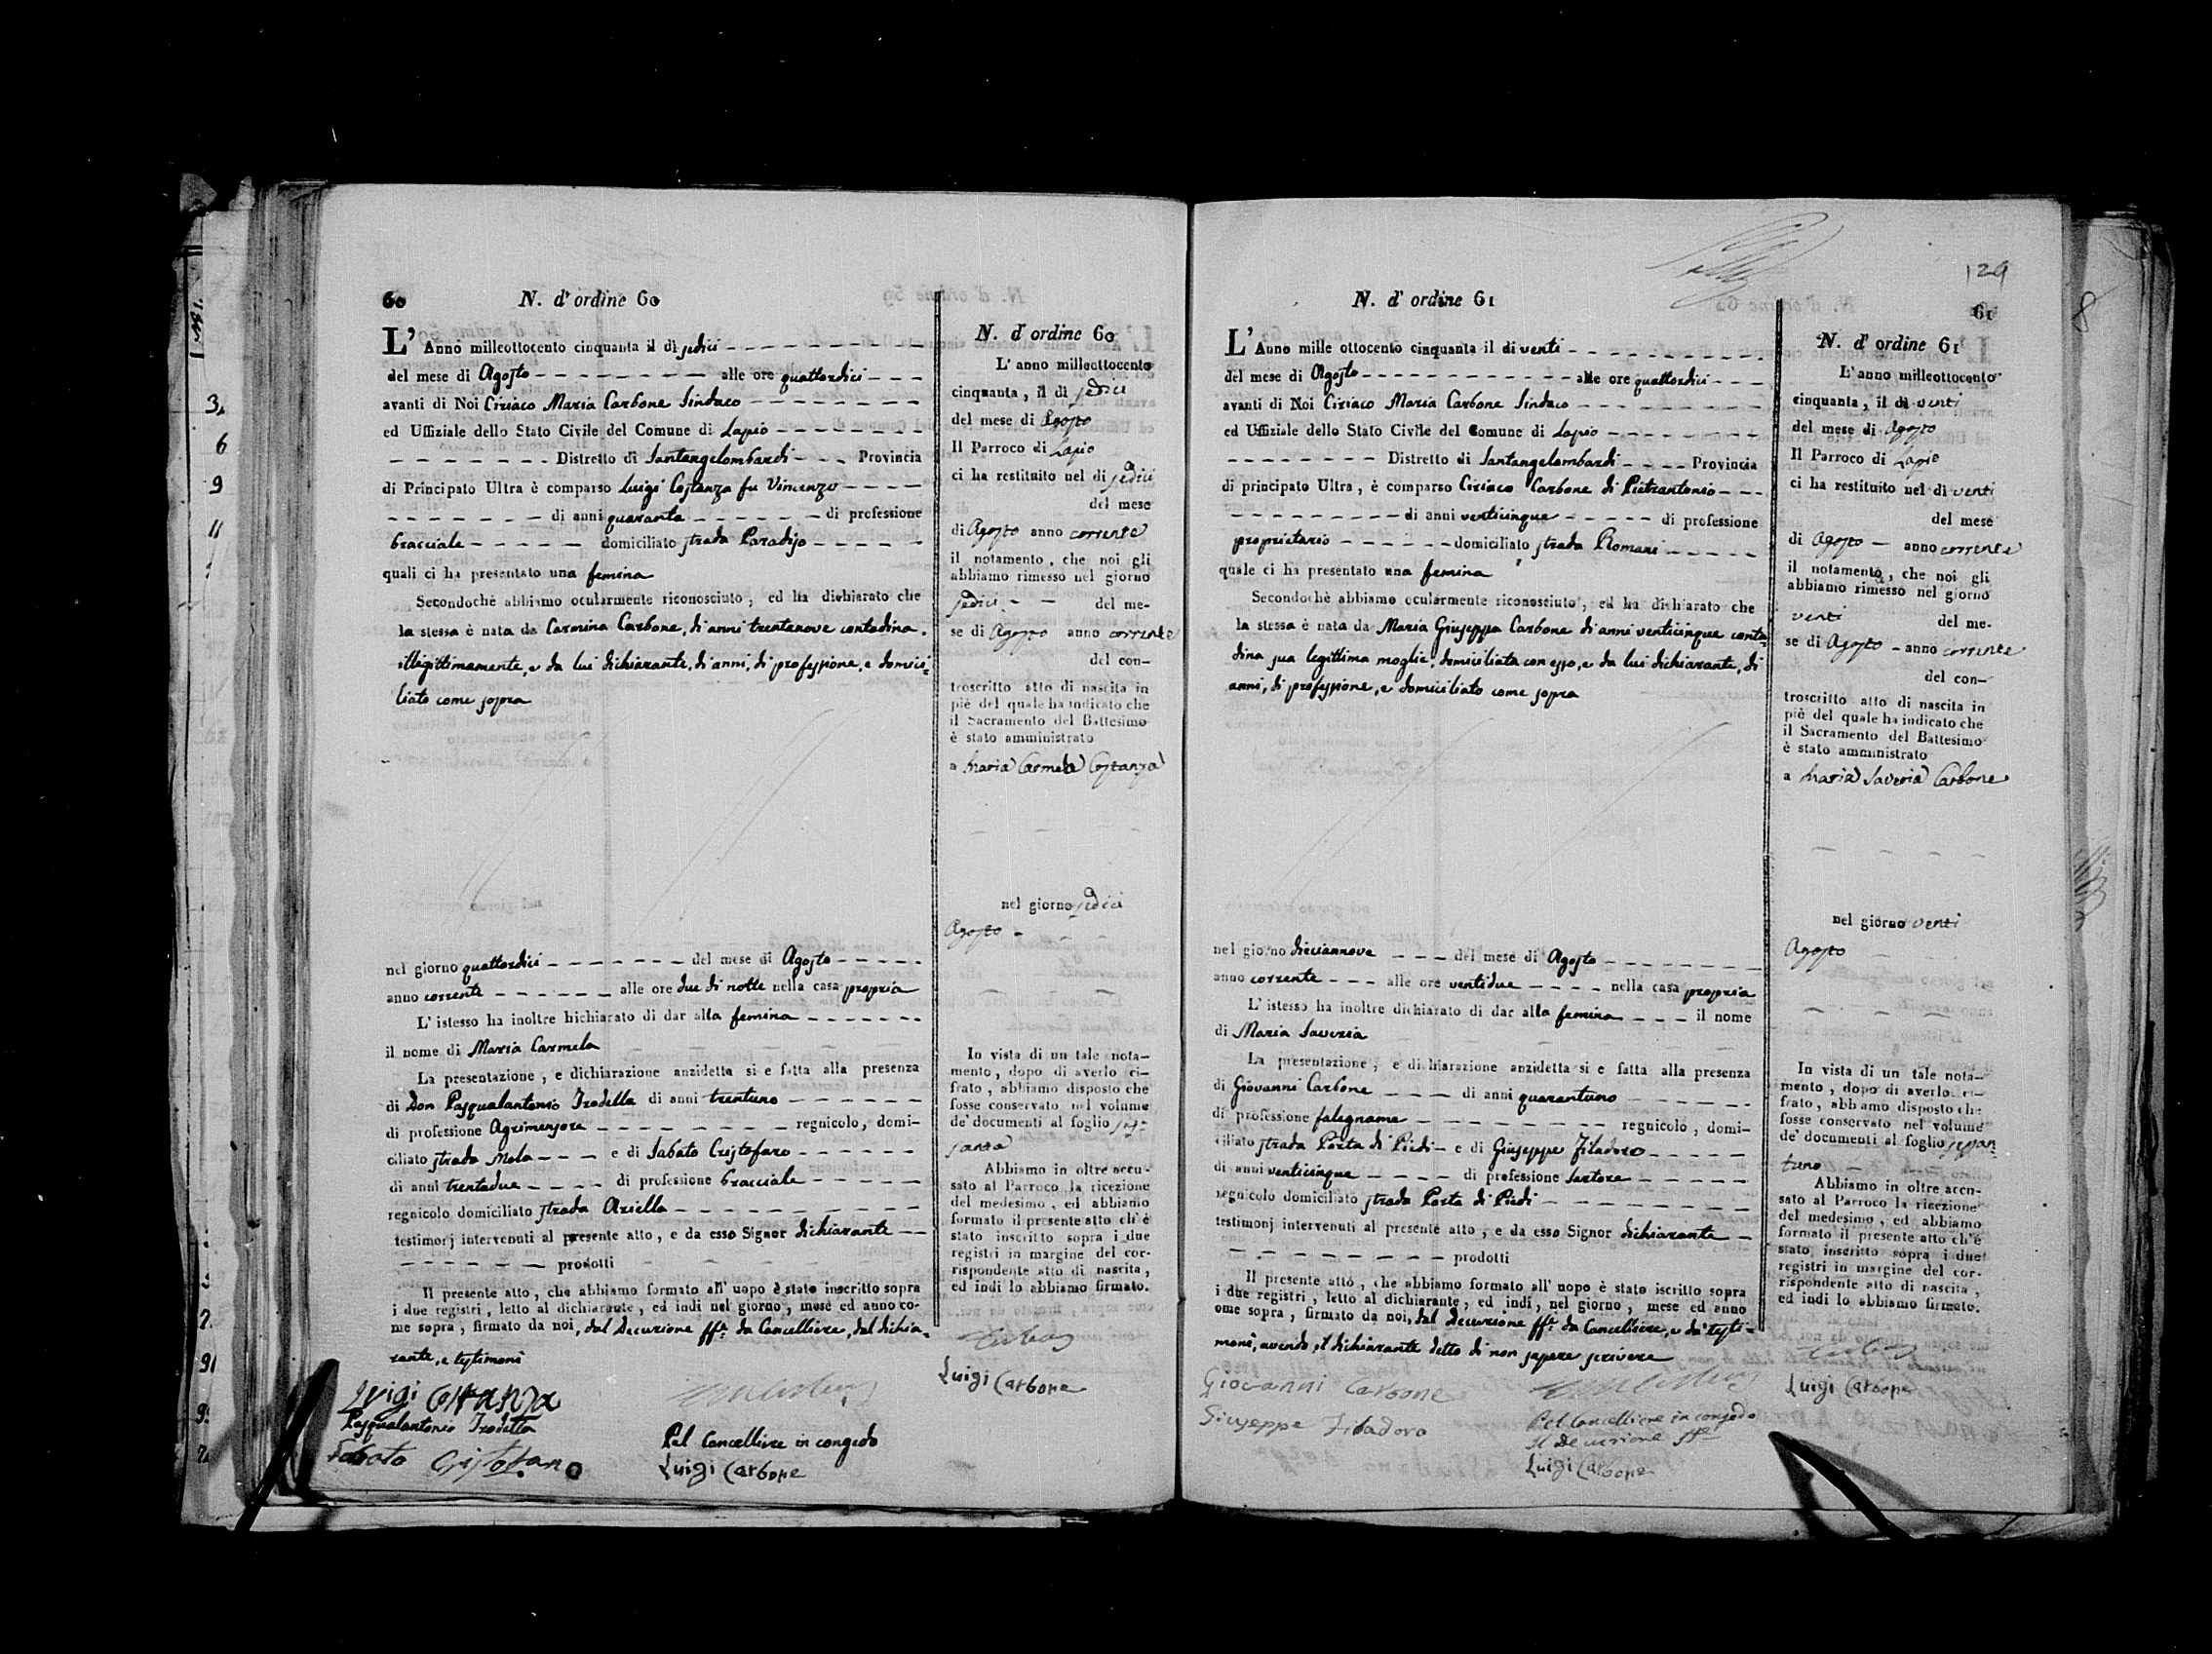 60
N. d' ordine 60
L' Anno milleottocento cinquanta il dì sedici
del mese di Agosto alle ore quattordici
avanti di Noi Ciriaco Maria Carbone Sindaco
ed Uffiziale dello Stato Civile del Comune di Lapio
Distretto di Santangelombardi Provincia
di Principato Ultra è comparso Luigi Costanza fu Vincenzo
di anni quaranta di professione
bracciale domiciliato strada Paradiso
quali ci ha presentato una femina
Secondochè abbiamo ocularmente riconosciuto, ed ha dichiarato che
la stessa è nata da Carmina Carbone, di anni trentanove contadina.
illegittimamente, e da lui dichiarante, di anni, di professione, e domici=
liato come sopra
nel giorno quattordici del mese di Agosto
anno corrente alle ore due di notte nella casa propria
L' istesso ha inoltre hichiarato di dar alla femina
il nome di Maria Carmela
La presentazione, e dichiarazione anzidetta si e fatta alla presenza
di Don Pasqualantonio Trodella di anni trentuno
di professione Agrimensore regnicolo, domi-
ciliato strada Mola e di Sabato Cristofaro
di anni trentadue di professione bracciale
regnicolo domiciliato strada Ariella
testimorj intervenuti al presente atto, e da esso Signor dichiarante
prodotti
Il presente atto, che abbiamo formato all' uopo è stato inscritto sopra
i due registri, letto al dichiarante, ed indi nel giorno, mese ed anno co-
me sopra, firmato da noi, dal Decurione ff.e da Cancelliere, dal dichia=
rante, e testimoni
Luigi Costanza
Pasqualantonio Trodella
Sabato Cristofano
Pel Cancelliere in congedo
Luigi Carbone
N. d' ordine 60
L' anno milleottocento
cinquanta, il di sedici
del mese di Agosto
Il Parroco di Lapio
ci ha restituito nel di sedici
del mese
di Agosto anno corrente
il notamento, che noi gli
abbiamo rimesso nel giorno
sedici del me-
se di Agosto anno corrente
del con-
troscritto atto di nascita in
piè del quale ha indicato che
il Sacramento del Battesimo
è stato amministrato
a Maria Carmela Costanza
nel giorno sedici
Agosto
In vista di un tale nota-
mento, dopo di averlo ci-
frato, abbiamo disposto che
fosse conservato nel volume
de' documenti al foglio ses-
santa
Abbiamo in oltre accu-
sato al Parroco la ricezione
del medesimo, ed abbiamo
formato il presente atto ch'è
stato inscritto sopra i due
registri in margine del cor-
rispondente atto di nascita,
ed indi lo abbiamo firmato.
Luigi Carbone
129
61
N. d' ordine 61
L' Anno mille ottocento cinquanta il di venti
del mese di Agosto alle ore quattordici
avanti di Noi Ciriaco Maria Carbone Sindaco
ed Uffiziale dello Stato Civile del Comune di Lapio
Distretto di Santangelombardi Provincia
di principato Ultra, è comparso Ciriaco Carbone di Pietrantonio
di anni venticinque di professione
proprietario domiciliato strada Romani
quale ci ha presentato una femina
Secondochè abbiamo ocularmente riconosciuto, ed ha dichiarato che
la stessa è nata da Maria Giuseppa Carbone di anni venticinque conta=
dina sua legittima moglie, domiciliata con esso, e da lui dichiarante, di
anni, di professione, e domiciliato come sopra
nel giorno diciannove del mese di Agosto
anno corrente alle ore ventidue nella casa propria
L' istesso ha inoltre dichiarato di dar alla femina il nome
di Maria Saveria
La presentazione, e dichiarazione anzidetta si e fatta alla presenza
di Giovanni Carbone di anni quarantuno
di professione falegname regnicolo, domi-
ciliato strada Porta di Piedi e di Giuseppe Filadoro
di anni venticinque di professione Sartore
regnicolo domiciliato strada Porta di Piedi
testimonj intervenuti al presente atto, e da esso Signor dichiarante
prodotti
Il presente atto, che abbiamo formato all' uopo è stato iscritto sopra
i due registri, letto al dichiarante, ed indi, nel giorno, mese ed anno
ome sopra, firmato da noi, dal Decurione ff.e da Cancelliere, e da' testi=
moni, avendo il dichiarante detto di non sapere scrivere
Giovanni Carbone
Giuseppe Filadoro
Pel Cancelliere in congedo
Il Decurione ff.e
Luigi Carbone
N. d' ordine 61
L' anno milleottocento
cinquanta, il di venti
del mese di Agosto
Il Parroco di Lapio
ci ha restituito nel di venti
del mese
di Agosto anno corrente
il notamento, che noi gli
abbiamo rimesso nel giorno
venti del me-
se di Agosto anno corrente
del con-
troscritto atto di nascita in
piè del quale ha indicato che
il Sacramento del Battesimo
è stato amministrato
a Maria Saveria Carbone
nel giorno venti
Agosto
In vista di un tale nota-
mento, dopo di averlo ci-
frato, abbiamo disposto che
fosse conservato nel volume
de' documenti al foglio sessan
tuno
Abbiamo in oltre accu-
sato al Parroco la ricezione
del medesimo, ed abbiamo
formato il presente atto ch'è
stato inscritto sopra i due
registri in margine del cor-
rispondente atto di nascita,
ed indi lo abbiamo firmato.
Luigi Carbone